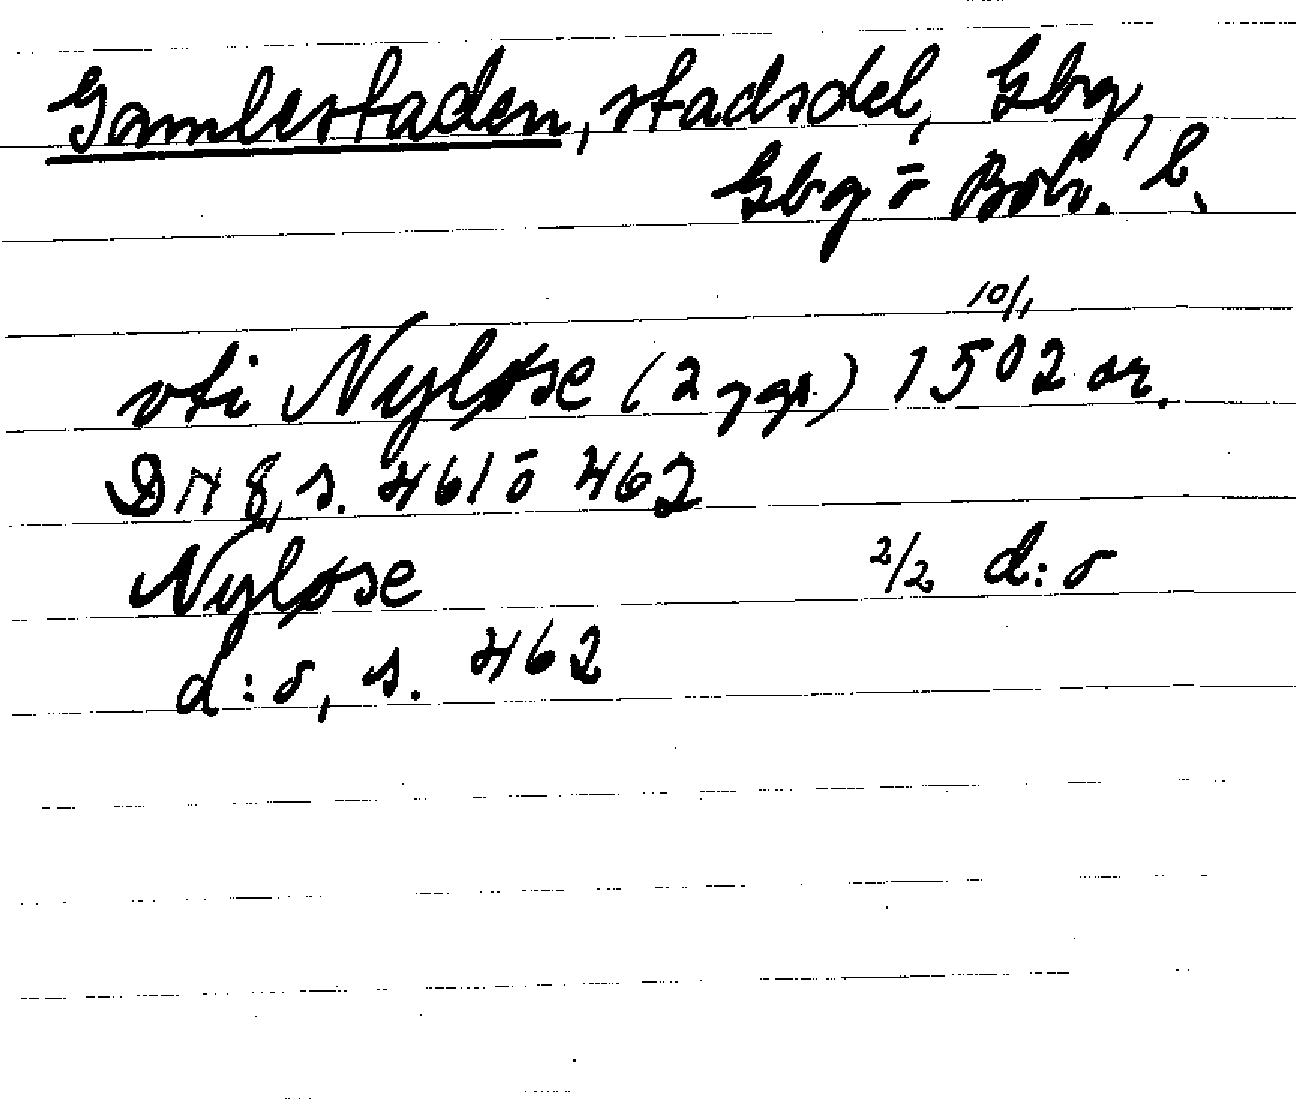 Gamlestaden, stadsdel, Gbg,
Gbg o Boh. l.
10/1
vti Nyløse (2 ggr) 1502 or.
DN 8, s. 461 o 462
Nyløse 2/2 d:o
d:o, s. 462